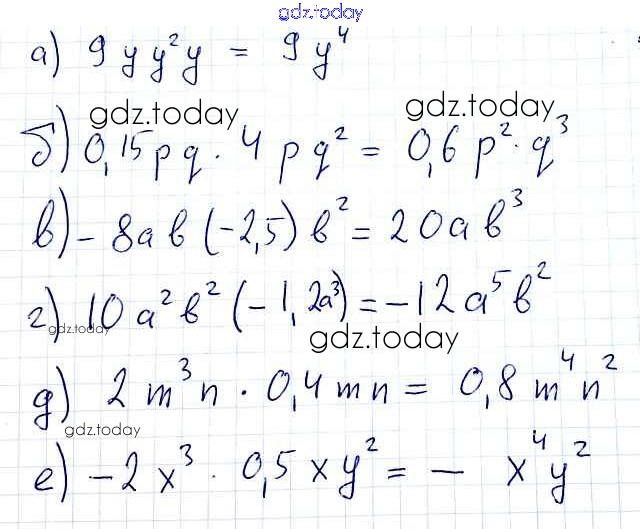 gdz.today
а) 9yy²y = 9y⁴
gdz.today gdz.today
б) 0,15pq · 4pq² = 0,6p² · q³
в) -8ab(-2,5)b² = 20ab³
г) 10a²b²(-1,2a³) = -12a⁵b²
gdz.today
gdz.today
д) 2m³n · 0,4mn = 0,8m⁴n²
gdz.today
е) -2x³ · 0,5xy² = - x⁴y²